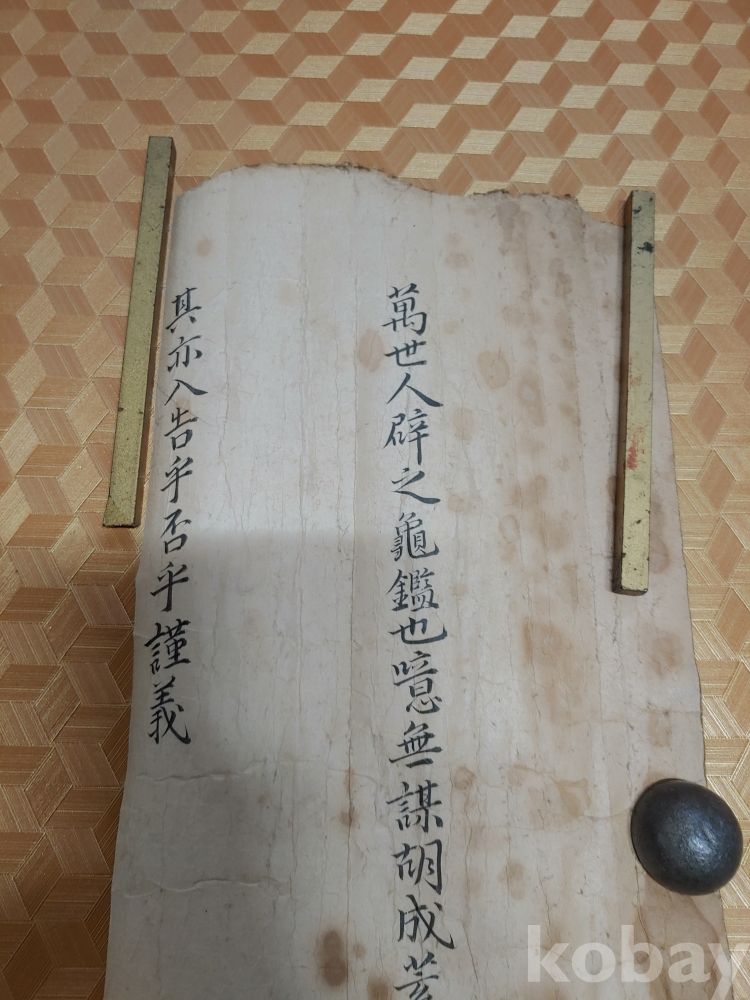 萬世人辟之龜鑑也噫無謀胡成
其亦入告乎否乎謹義
kobay